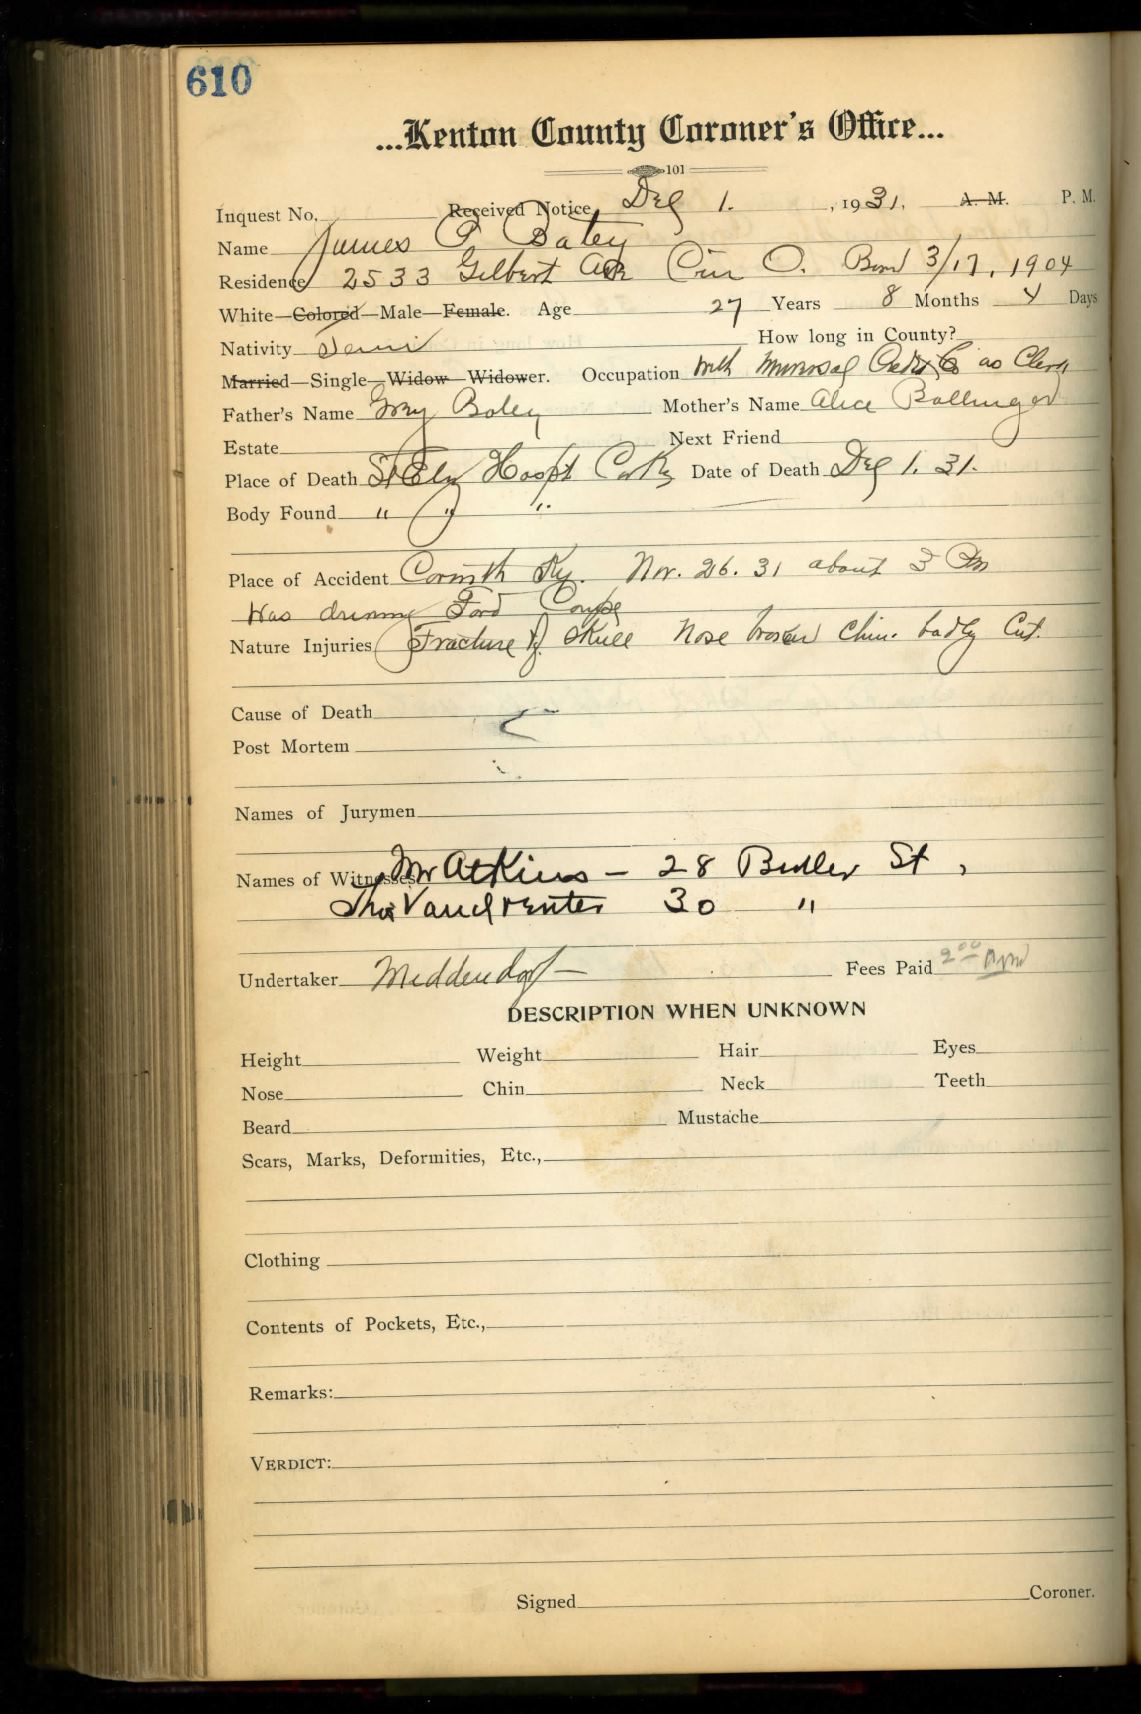 610
...Kenton County Coroner's Office...
101
Inquest No. Received Notice Dec 1. , 1931. A. M. P. M.
Name James P. Batey
Residence 2533 Gilbert Ave Cin O. Born 3/17, 1904
White—Colored—Male—Female. Age 27 Years 8 Months 4 Days
Nativity Tenn How long in County?
Married—Single—Widow—Widower. Occupation with Universal Co as Clerk
Father's Name Batey Mother's Name Alice Ballinger
Estate Next Friend
Place of Death St Elz Hospt Cov Ky Date of Death Dec 1. 31.
Body Found " " "
Place of Accident Corinth Ky. Nov. 26. 31 about 3 Pm
Was driving Ford Coupe
Nature Injuries Fracture of Skull Nose broken Chin. badly Cut.
Cause of Death
Post Mortem
Names of Jurymen
Names of Witnesses Mr Atkins — 28 St ,
Thos Vandventer 30 "
Undertaker Middendorf — Fees Paid 2.00
DESCRIPTION WHEN UNKNOWN
Height Weight Hair Eyes
Nose Chin Neck Teeth
Beard Mustache
Scars, Marks, Deformities, Etc.,
Clothing
Contents of Pockets, Etc.,
Remarks:
VERDICT:
Signed Coroner.